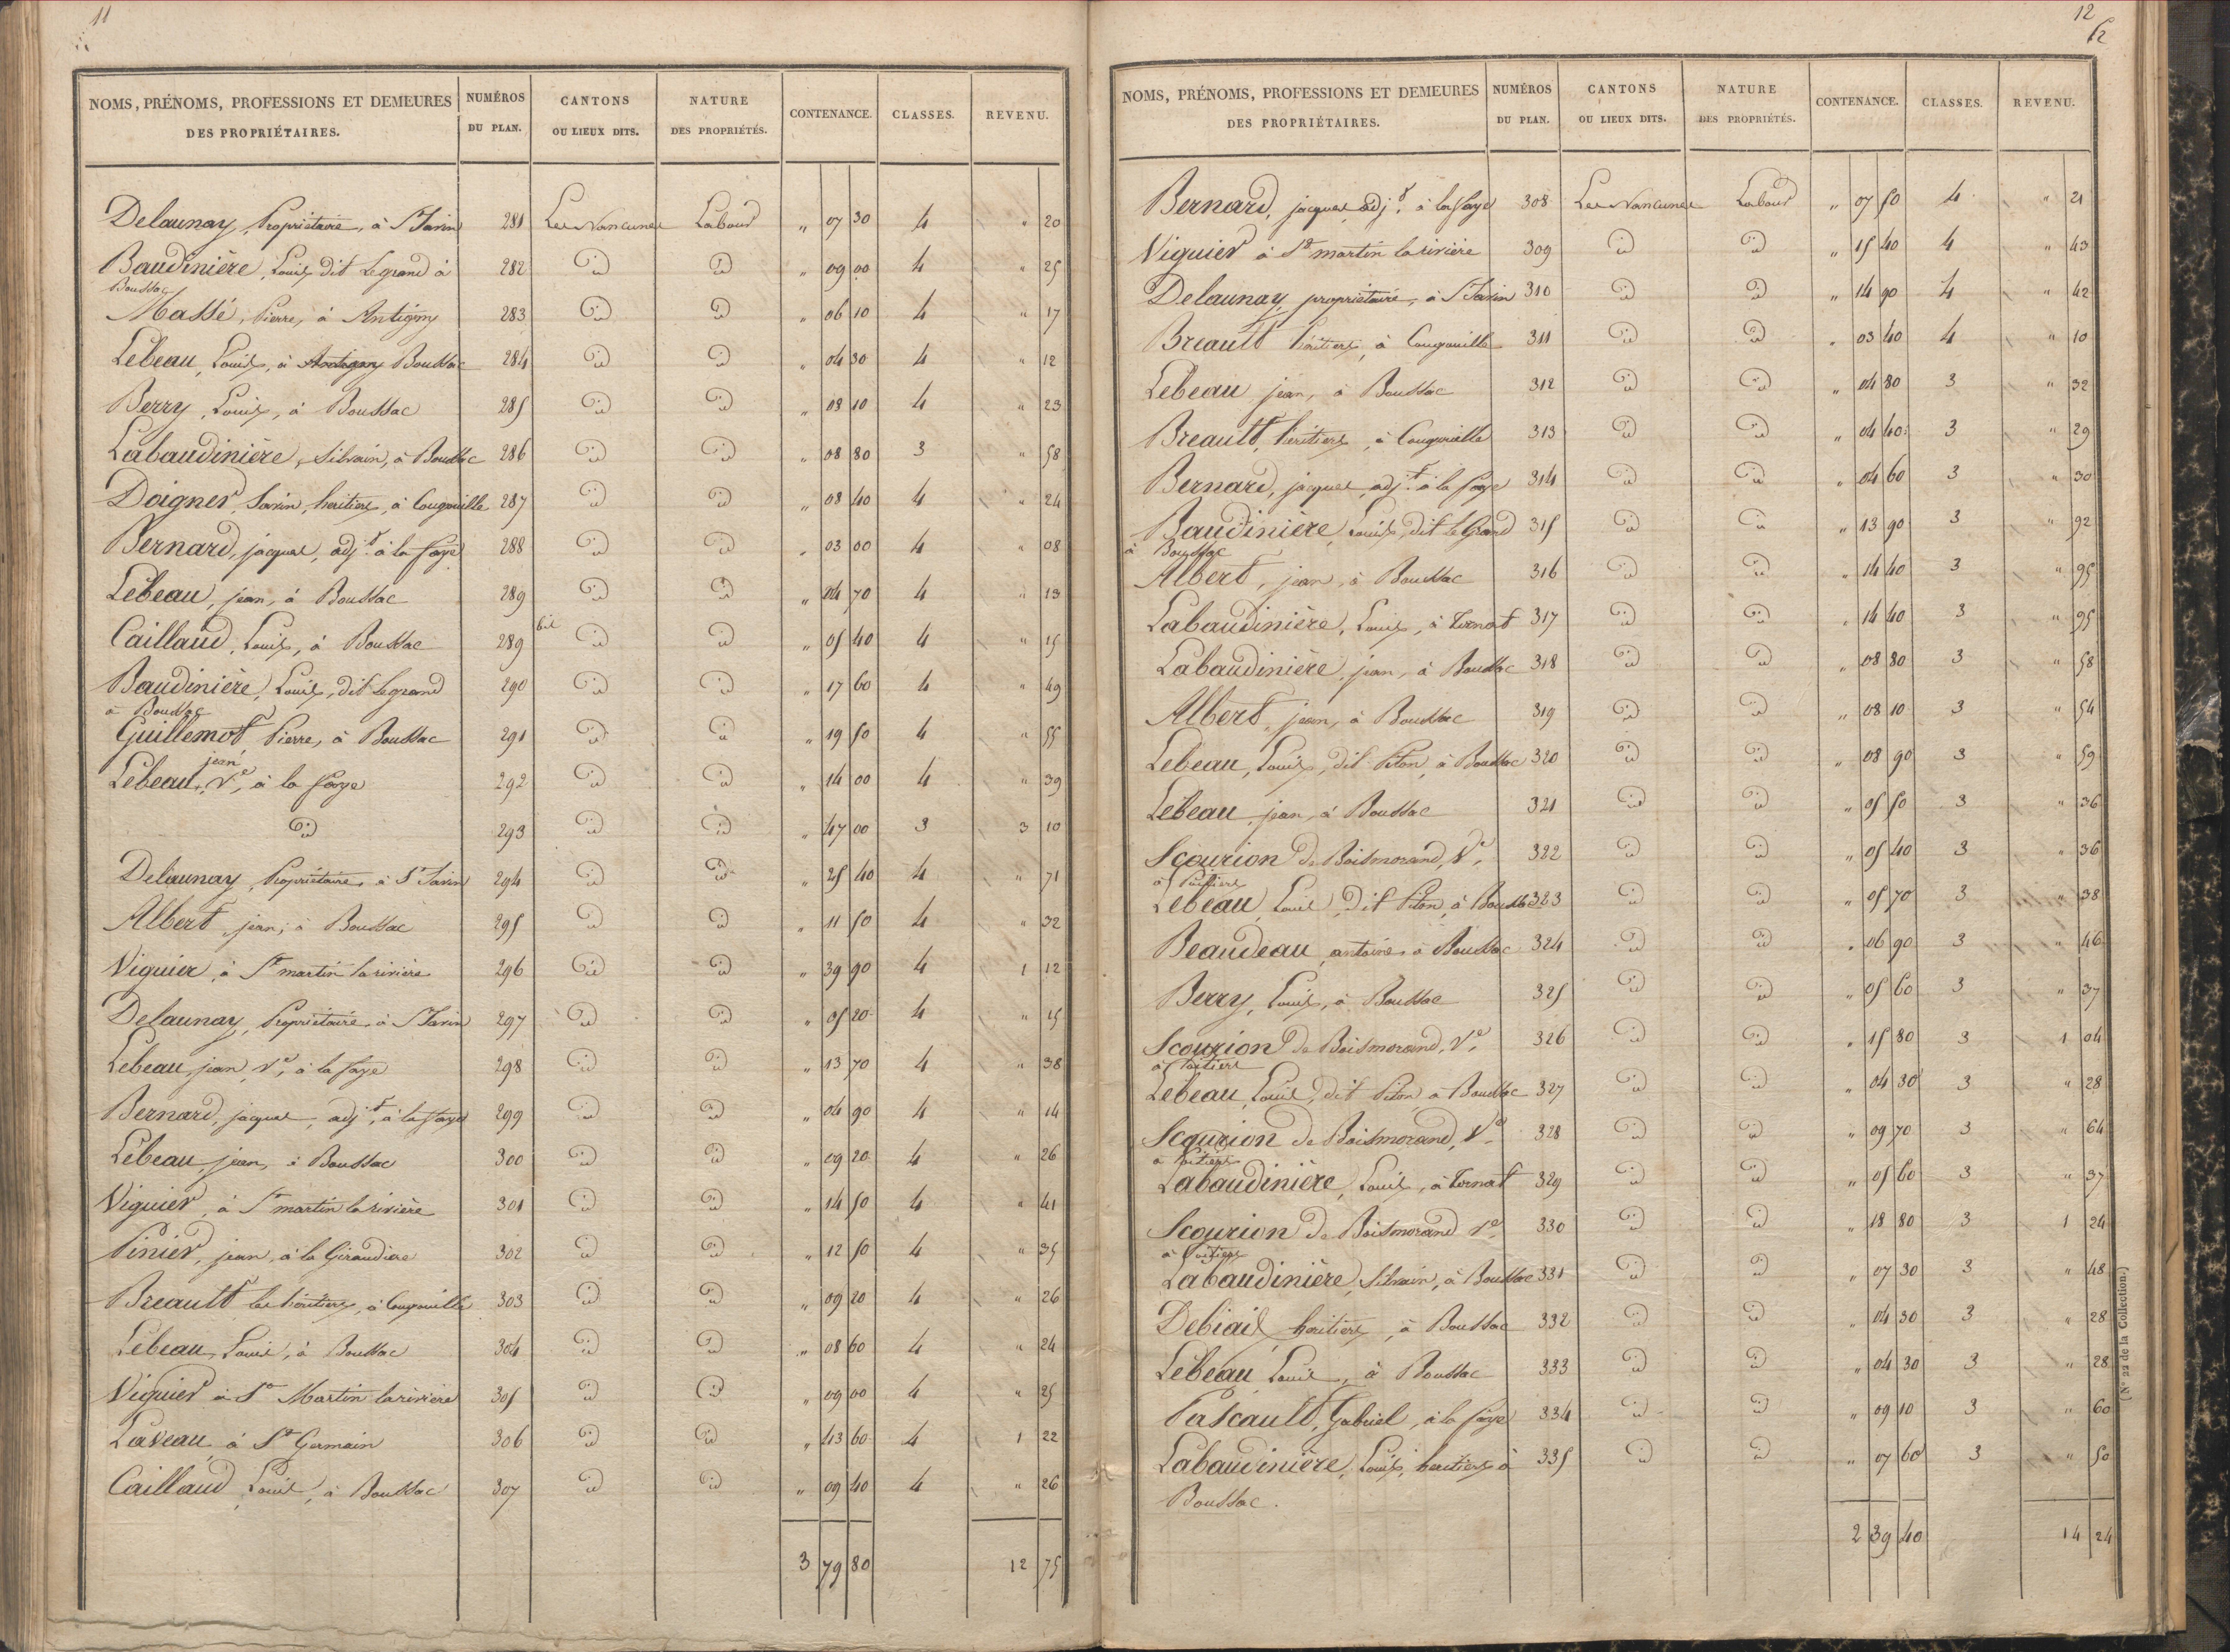 11
NOMS, PRÉNOMS, PROFESSIONS ET DEMEURES DES PROPRIÉTAIRES. NUMÉROS DU PLAN. CANTONS OU LIEUX DITS. NATURE DES PROPRIÉTÉS. CONTENANCE. CLASSES. REVENU.
Delaunay, Propriétaire, à St Savin 281 Les Nancunes Labour " 07 30 4 " 20
Baudinière, Louis dit Legrand à Boussac 282 id id " 09 00 4 " 25
Massé, Pierre, à Antigny 283 id id " 06 10 4 " 17
Lebeau, Louis, à Antigny Boussac 284 id id " 04 30 4 " 12
Berry, Louis, à Boussac 285 id id " 08 10 4 " 23
Labaudinière, Silvain, à Boussac 286 id id " 08 80 3 " 58
Doigner, Savin, heritiers, à Cougouille 287 id id " 08 40 4 " 24
Bernard, jacques, adjt à la faye 288 id id " 03 00 4 " 08
Lebeau, jean, à Boussac 289 id id " 04 70 4 " 13
Caillaud, Louis, à Boussac 289 bis id id " 05 40 4 " 15
Baudinière, Louis, dit Legrand à Boussac 290 id id " 17 60 4 " 49
Guillemot, Pierre, à Boussac 291 id id " 19 50 4 " 55
Lebeau, jean Ve, à la faye 292 id id " 14 00 4 " 39
id 293 id id " 47 00 3 3 10
Delaunay, Propriétaire, à St Savin 294 id id " 25 40 4 " 71
Albert, jean, à Boussac 295 id id " 11 50 4 " 32
Viguier, à St martin la rivière 296 id id " 39 90 4 1 12
Delaunay, Propriétaire, à St Savin 297 id id " 05 20 4 " 15
Lebeau, jean, Ve, à la faye 298 id id " 13 70 4 " 38
Bernard, jacques, adjt, à la faye 299 id id " 04 90 4 " 14
Lebeau, jean, à Boussac 300 id id " 09 20 4 " 26
Viguier, à St martin la rivière 301 id id " 14 50 4 " 41
Pinier, jean, à la Giraudière 302 id id " 12 50 4 " 35
Breault les héritiers, à Cougouille 303 id id " 09 20 4 " 26
Lebeau, Louis, à Boussac 304 id id " 08 60 4 " 24
Viguier à St Martin la rivière 305 id id " 09 00 4 " 25
Laveau à St Germain 306 id id " 43 60 4 1 22
Caillaud, Louis, à Boussac 307 id id " 09 40 4 " 26
3 79 80 12 75
12
12
NOMS, PRÉNOMS, PROFESSIONS ET DEMEURES DES PROPRIÉTAIRES. NUMÉROS DU PLAN. CANTONS OU LIEUX DITS. NATURE DES PROPRIÉTÉS. CONTENANCE. CLASSES. REVENU.
Bernard, jacques adjt, à la faye 308 Les Nancunes Labour " 07 50 4 " 21
Viguier à St martin la rivière 309 id id " 15 40 4 " 43
Delaunay, propriétaire, à St Savin 310 id id " 14 90 4 " 42
Breault héritiers, à Cougouille 311 id id " 03 40 4 " 10
Lebeau jean, à Boussac 312 id id " 04 80 3 " 32
Breault, héritiers, à Cougouille 313 id id " 04 40 3 " 29
Bernard, jacques adjt à la faye 314 id id " 04 60 3 " 30
Baudinière, Louis, dit le Grand à Boussac 315 id id " 13 90 3 " 92
Albert, jean, à Boussac 316 id id " 14 40 3 " 95
Labaudinière, Louis, à Ternat 317 id id " 14 40 3 " 95
Labaudinière, jean, à Boussac 318 id id " 08 80 3 " 58
Albert, jean, à Boussac 319 id id " 08 10 3 " 54
Lebeau, Louis, dit Piton, à Boussac 320 id id " 08 90 3 " 59
Lebeau, jean, à Boussac 321 id id " 05 50 3 " 36
Scourion de Boismorand, Ve, à Poitiers 322 id id " 05 40 3 " 36
Lebeau, Louis, dit Piton, à Boussac 323 id id " 05 70 3 " 38
Beaudeau, antoine, à Boussac 324 id id " 06 90 3 " 46
Berry, Louis, à Boussac 325 id id " 05 60 3 " 37
Scourion de Boismorand, Ve, à Poitiers 326 id id " 15 80 3 1 04
Lebeau, Louis, dit Piton, à Boussac 327 id id " 04 30 3 " 28
Scourion de Boismorand, Ve à Poitiers 328 id id " 09 70 3 " 64
Labaudinière, Louis, à Ternat 329 id id " 05 60 3 " 37
Scourion de Boismorand Ve à Poitiers 330 id id " 18 80 3 1 24
Labaudinière, Silvain, à Boussac 331 id id " 07 30 3 " 48
Debiais, heritiers, à Boussac 332 id id " 04 30 3 " 28
Lebeau Louis, à Boussac 333 id id " 04 30 3 " 28
Pascault, Gabriel, à la faye 334 id id " 09 10 3 " 60
Labaudinière, Louis, heritiers à Boussac. 335 id id " 07 60 3 " 50
2 39 40 14 24
(N° 22 de la Collection.)